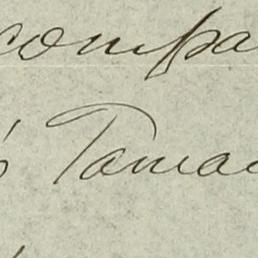 compa
Tama